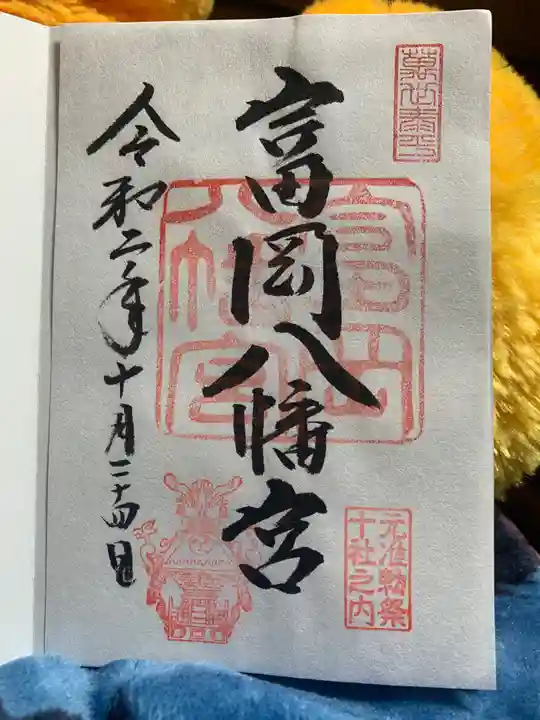 萬世泰平
富岡八幡宮
富岡八幡宮
元准勅祭
十社之内
令和二年十月二十四日